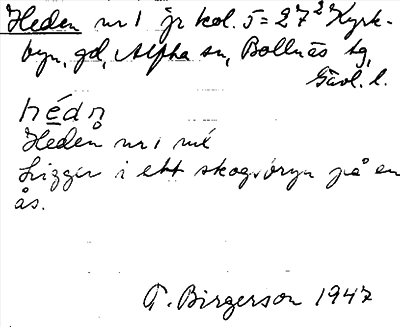 Heden nr 1 jr kol. 5 = 27² Kyrk-
byn, gd, Alpha sn, Bollnäs tg,
Gävl. l.
hédn
Heden nr 1 mé
Ligger i ett skogsbryn på en
ås.
T. Birgerson 1947